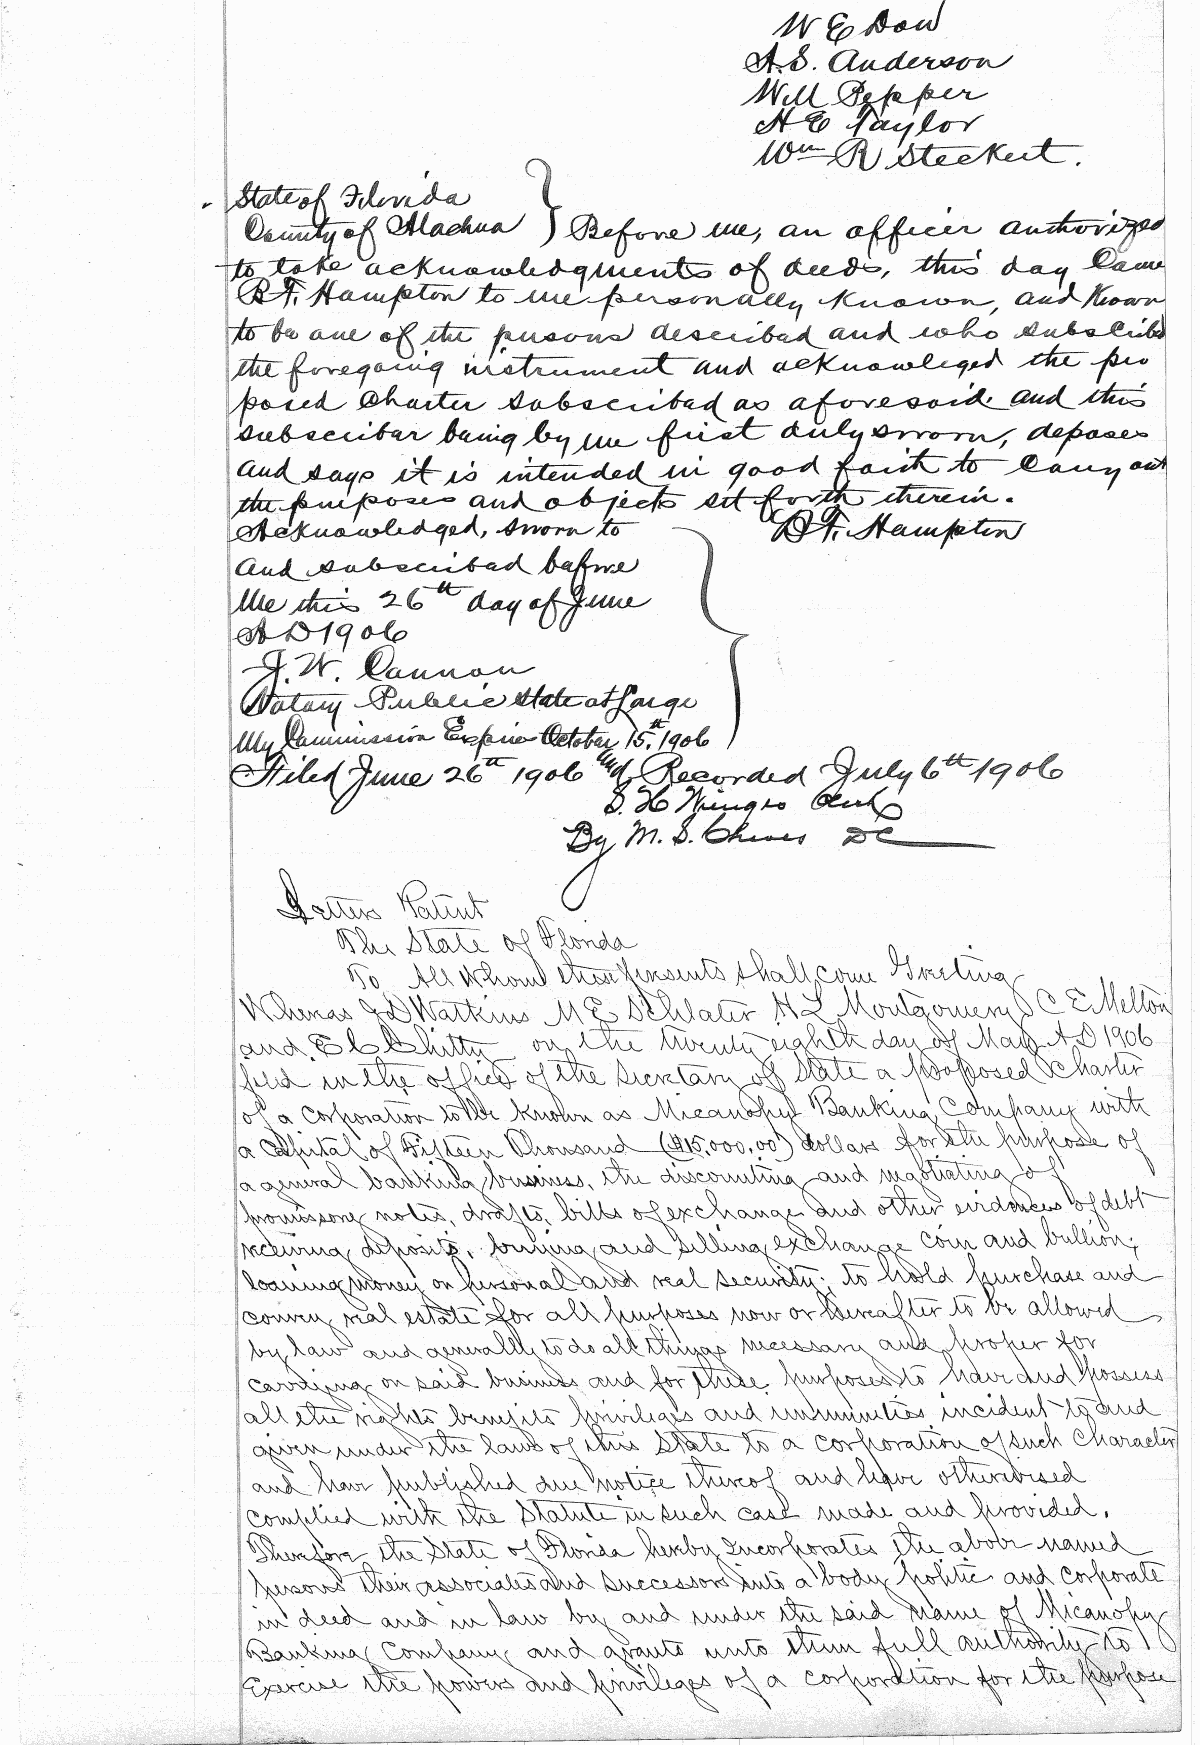 W E Dow
A. S. Anderson
Will Pepper
H E Taylor
Wm R Steckert.
State of Florida
County of Alachua } Before me, an officer authorized
to take acknowledgments of deeds, this day Came
B. F. Hampton to me personally Known, and Known
to be one of the persons described and who subscribed
the foregoing instrument and acknowleged the pro
posed Charter subscribed as aforesaid and this
subscriber being by me first duly sworn, deposes
and says it is intended in good faith to Carry out
the purposes and objects set forth therein.
Acknowledged, sworn to B. F. Hampton
and subscribed before
me this 26th day of June
A D 1906
J. W. Cannon
Notary Public State at Large
My Commission Expires October 15th, 1906
Filed June 26th 1906 and Recorded July 6th 1906
S. H Wienges Clerk
By M. S. Cheves DC
Letters Patent
The State of Florida
To All Whom these Presents shall come Greeting
Whereas J D Watkins M E Schlater H L Montgomery C E Melton
and E C Chitty on the twenty eighth day of May A D 1906
filed in the office of the Secretary of State a proposed Charter
of a corporation to be known as Micanopy Banking Company with
a capital of Fifteen Thousand ($15,000.00) dollars for the purpose of
a general banking business, the discounting and negotiating of
promissory notes, drafts, bills of exchange and other evidences of debt
receiving deposits, buying and selling exchange coin and bullion;
loaning money on personal and real security; to hold purchase and
convey real estate for all purposes now or hereafter to be allowed
by law and generally to do all things necessary and proper for
carrying on said business and for these purposes to have and possess
all the rights benefits privileges and immunities incident to and
given under the laws of this State to a corporation of such Character
and have published due notice thereof and have otherwised
complied with the Statute in such case made and provided.
Therefore the State of Florida herby Incorporates the above named
persons their associates and successors into a body politic and corporate
in deed and in law by and under the said name of Micanopy
Banking Company and grants unto them full authority to
Exercise the powers and privileges of a corporation for the purpose